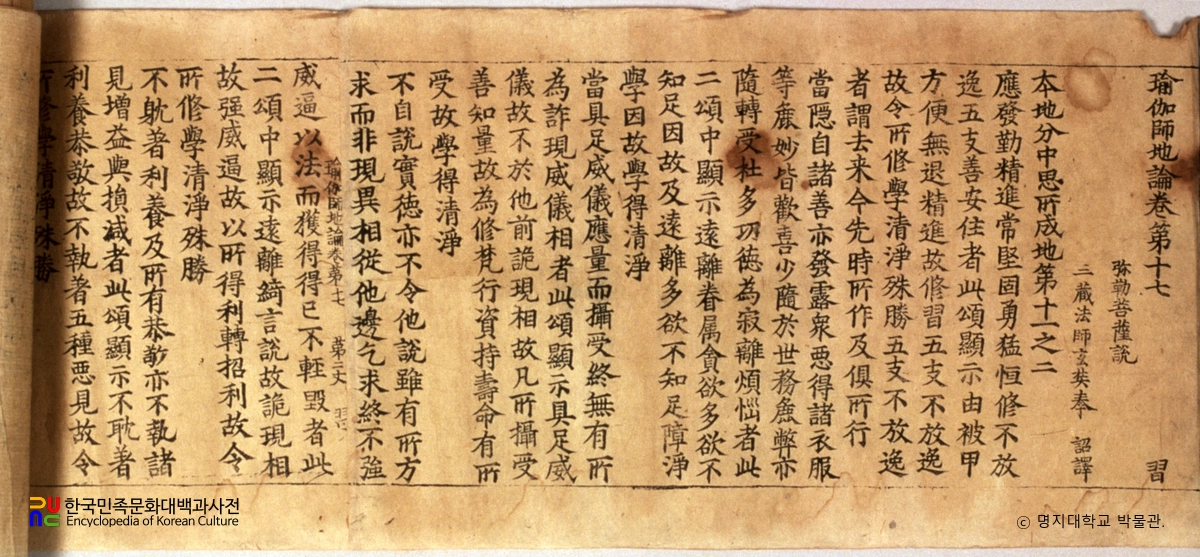 瑜伽師地論卷第十七 習
弥勒菩薩說
三藏法師玄奘奉 詔譯
本地分中思所成地第十一之二
應發勤精進常堅固勇猛恒修不放
逸五支善安住者此頌顯示由被甲
方便無退精進故修習五支不放逸
故令所修學清淨殊勝五支不放逸
者謂去来今先時所作及俱所行
當隱自諸善亦發露衆惡得諸衣服
等麁妙皆歡喜少隨於世務麁弊亦
隨轉受杜多功德為寂離煩惱者此
二頌中顯示遠離眷属貪欲多欲不
知足因故及遠離多欲不知足障淨
學因故學得清淨
當具足威儀應量而攝受終無有所
為詐現威儀相者此頌顯示具足威
儀故不於他前詭現相故凡所攝受
善知量故為修梵行資持壽命有所
受故學得清淨
不自說實德亦不令他說雖有所方
求而非現異相從他邊乞求終不強
瑜伽師地論卷第十七 第二丈
威逼以法而獲得得已不輕毀者此
二頌中顯示遠離綺言說故詭現相
故强威逼故以所得利轉招利故令
所修學清淨殊勝
不躭著利養及所有恭敬亦不執諸
見增益與損減者此頌顯示不耽著
利養恭敬故不執著五種惡見故令
所修學清淨殊勝
한국민족문화대백과사전
Encyclopedia of Korean Culture
© 명지대학교 박물관.